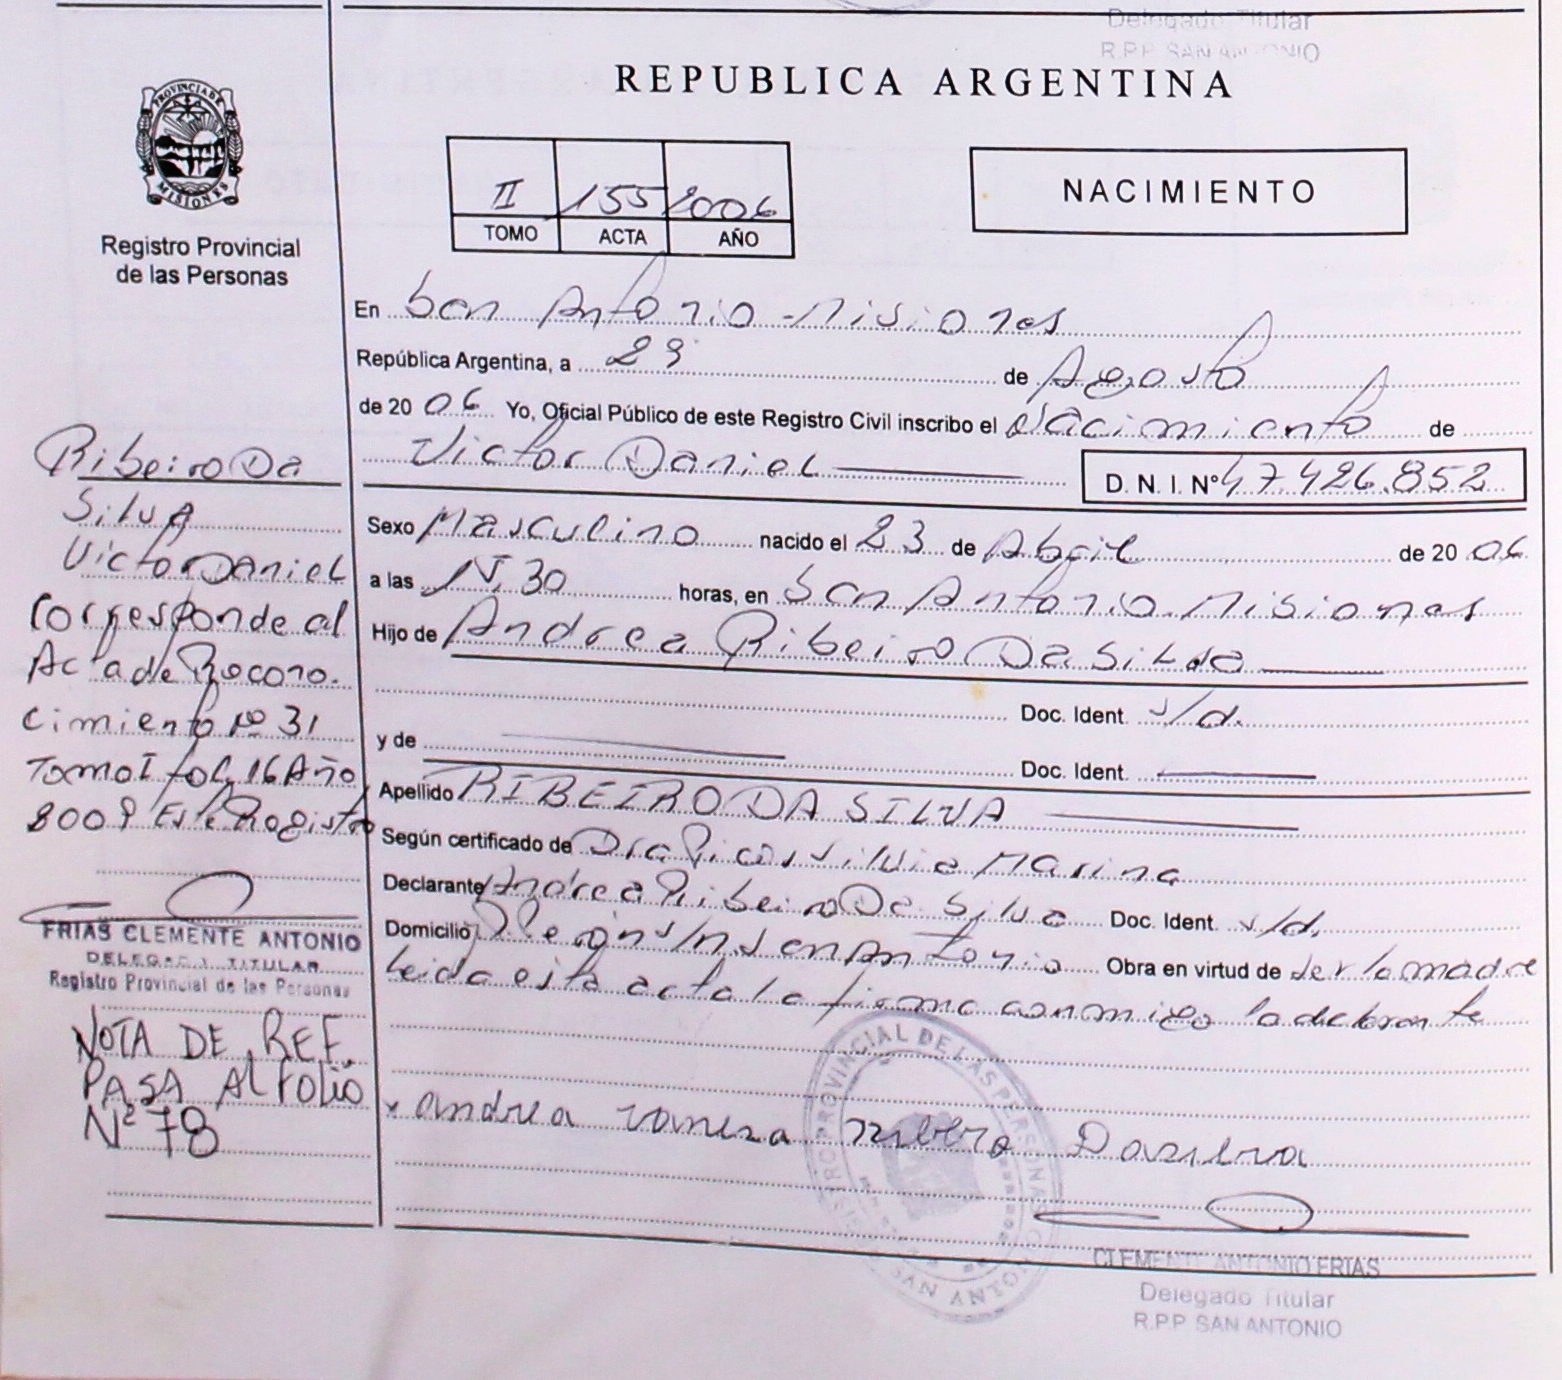 Delegado Titular
R.P.P. SAN ANTONIO
REPUBLICA ARGENTINA
PROVINCIA DE
MISIONES
Registro Provincial
de las Personas
II 155 2006
TOMO ACTA AÑO
NACIMIENTO
En San Antonio - Misiones
República Argentina, a 29 de Agosto
de 20 06 Yo, Oficial Público de este Registro Civil inscribo el Nacimiento de
Victor Daniel
D. N. I. Nº 47.426.852
Sexo Masculino nacido el 23 de Abril de 20 06
a las 15,30 horas, en San Antonio. Misiones
Hijo de Andrea Ribeiro Da Silva
Doc. Ident. s/d.
y de
Doc. Ident.
Apellido RIBEIRO DA SILVA
Según certificado de Dra Silvia Marina
Declarante Andrea Ribeiro Da Silva Doc. Ident. s/d.
Domicilio s/n San Antonio Obra en virtud de ser la madre
leida esta acta la firma conmigo la declarante
x andrea Dasilva
REGISTRO PROVINCIAL DE LAS PERSONAS
SAN ANTONIO
CLEMENTE ANTONIO FRIAS
Delegado Titular
R.P.P SAN ANTONIO
Ribeiro Da
Silva
Victor Daniel
Corresponde al
Acta de Recono.
cimiento Nº 31
Tomo I fol. 16 Año
2009 Este Registro
FRIAS CLEMENTE ANTONIO
DELEGADO TITULAR
Registro Provincial de las Personas
NOTA DE REF.
PASA AL FOLIO
Nº 78